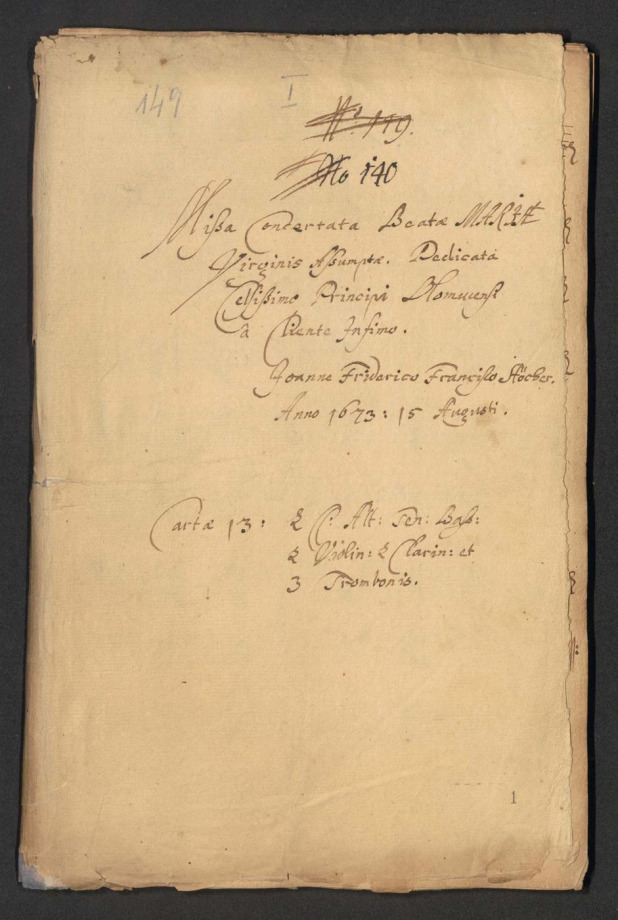 149 I
No. 119.
No 140
Missa Concertata Beatæ MARIÆ
Virginis Assumptæ. Dedicata
Celsissimo Principi Olomucensi
à Cliente Infimo.
Joanne Friderico Francisco Höcher.
Anno 1673: 15 Augusti.
Cartæ 13: 2 C: Alt: Ten: Bass:
2 Violin: 2 Clarin: et
3 Trombonis.
1